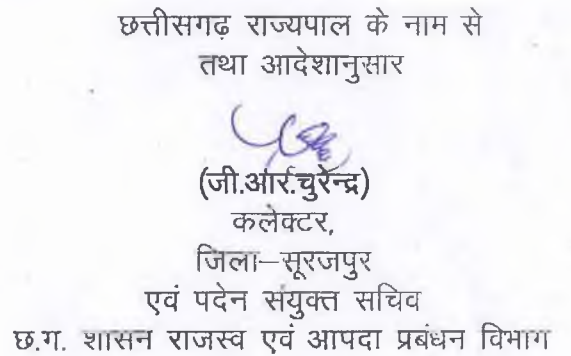 छत्तीसगढ़ राज्यपाल के नाम से
तथा आदेशानुसार
(जी.आर.चुरेन्द्र)
कलेक्टर,
जिला–सूरजपुर
एवं पदेन संयुक्त सचिव
छ.ग. शासन राजस्व एवं आपदा प्रबंधन विभाग